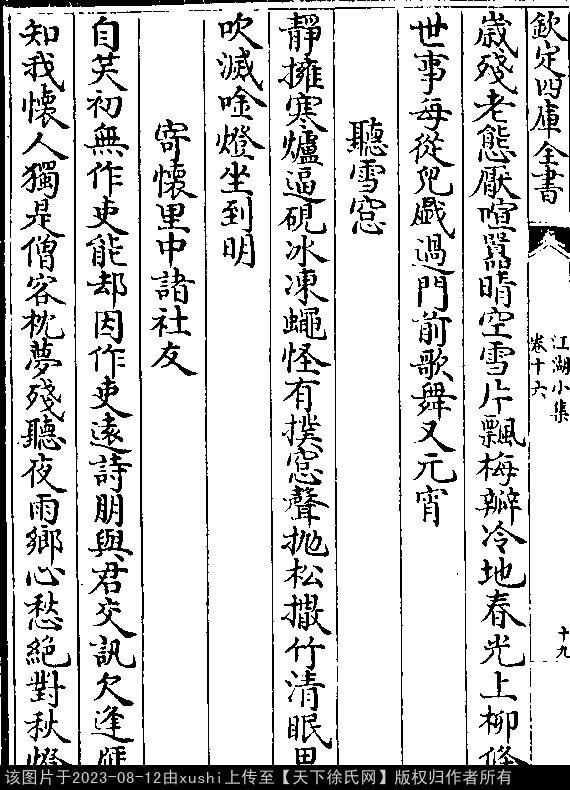 欽定四庫全書
江湖小集
卷十六
十九
歳殘老態厭喧囂晴空雪片飄梅瓣冷地春光上柳條
世事每從兒戯過門前歌舞又元宵
聽雪窓
靜擁寒爐逼硯冰凍蠅怪有撲窓聲拋松撒竹清眠思
吹滅唫燈坐到明
寄懷里中諸社友
自笑初無作吏能却因作吏遠詩朋與君交訊欠逢
知我懷人獨是僧客枕夢殘聽夜雨鄉心愁絶對秋燈
该图片于2023-08-12由xushi上传至【天下徐氏网】版权归作者所有